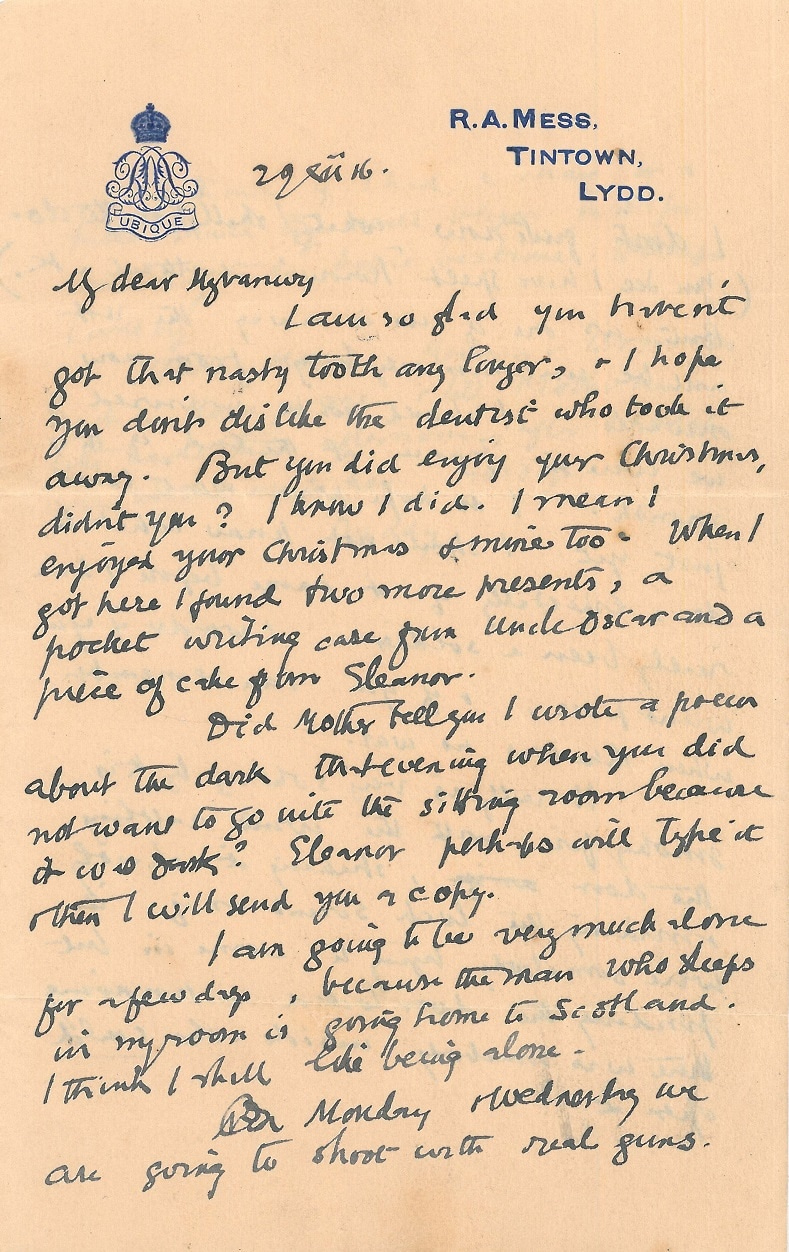 R.A. MESS,
TINTOWN,
LYDD.
UBIQUE
29 xii 16.
My dear Myfanwy
I am so glad you haven't
got that nasty tooth any longer, & I hope
you don't dislike the dentist who took it
away. But you did enjoy your Christmas,
didn't you? I know I did. I mean I
enjoyed your Christmas & mine too. When I
got here I found two more presents, a
pocket writing case from Uncle Oscar and a
piece of cake from Eleanor.
Did Mother tell you I wrote a poem
about the dark that evening when you did
not want to go into the sitting room because
it was dark? Eleanor perhaps will type it
& then I will send you a copy.
I am going to be very much alone
for a few days, because the man who sleeps
in my room is going home to Scotland.
I think I shall like being alone.
Monday & Wednesday we
are going to shoot with real guns.